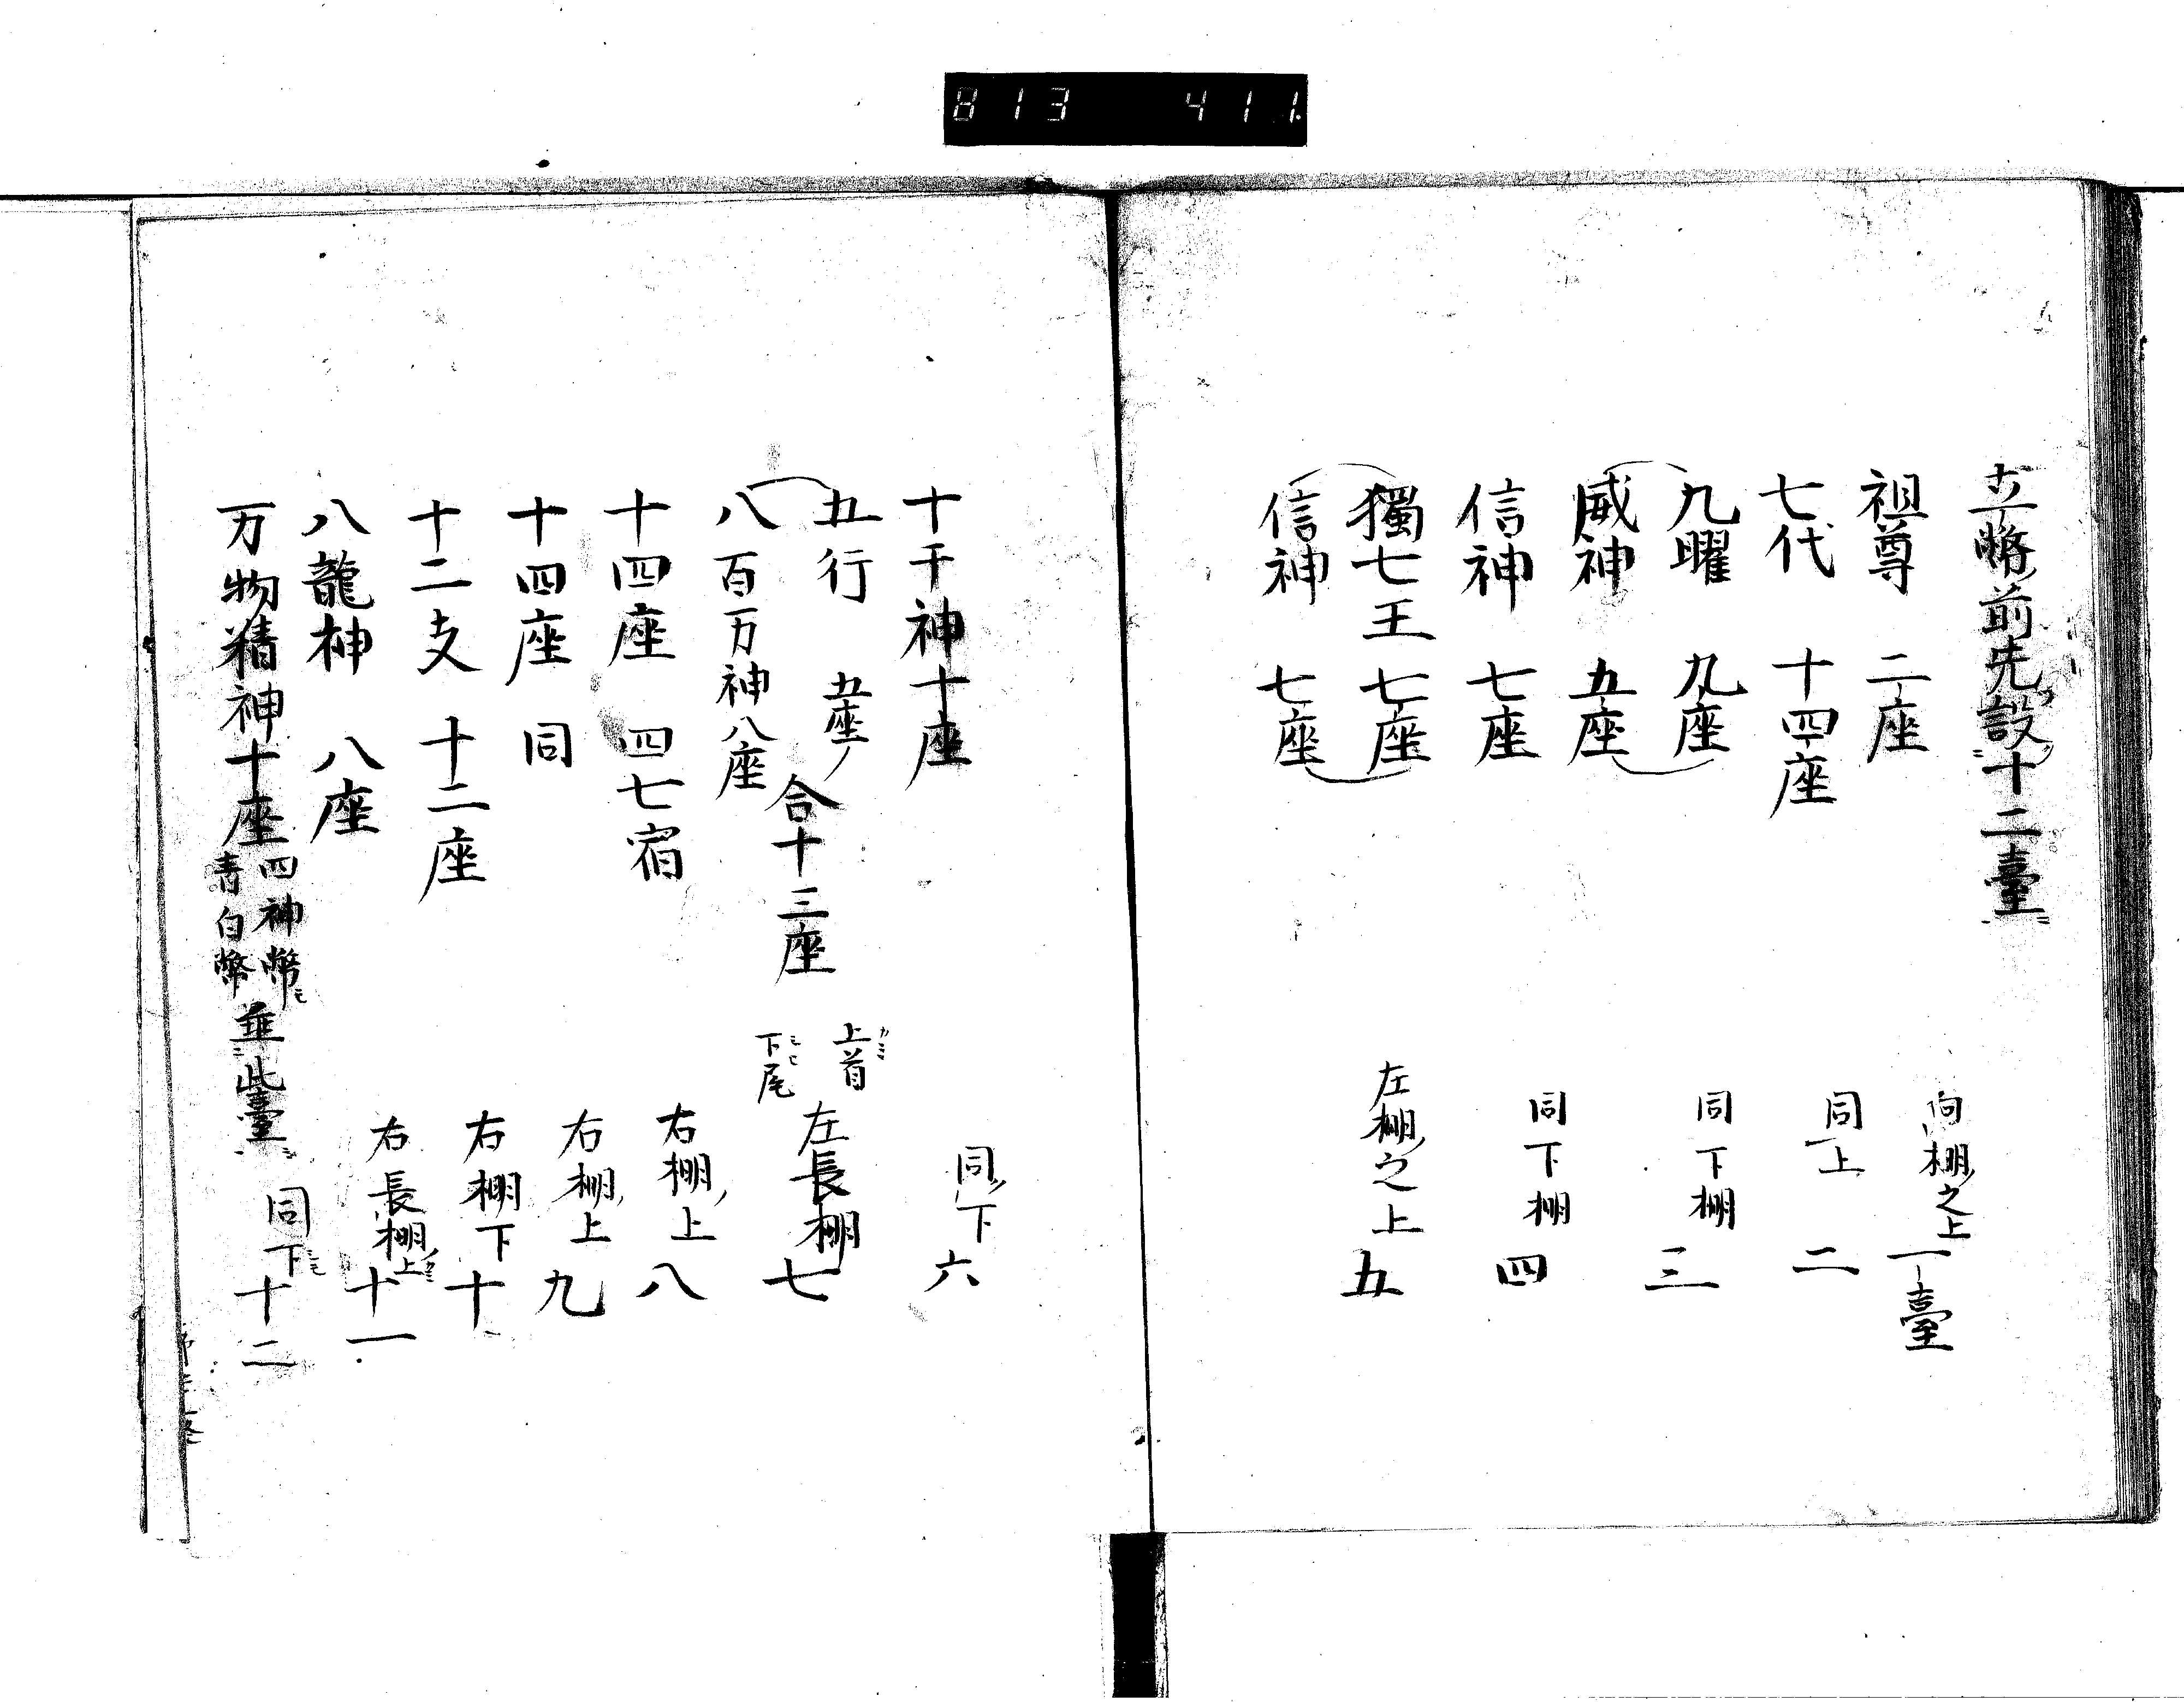 813 411
立幣前先設十二臺
祖尊 二座 向棚之上 一臺
七代 十四座 同上 二
九曜 九座 同下棚 三
威神 五座
信神 七座 同下棚 四
獨七王 七座 左棚之上 五
信神 七座
十干神十座 同下 六
五行 五座 上首
合十三座 左長棚 七
八百万神八座 下尾
十四座 四七宿 右棚上 八
十四座 同 右棚上 九
十二支 十二座 右棚下 十
八龍神 八座 右長棚上 十一
万物精神十座 四神幣 青白幣 並此臺 同下 十二